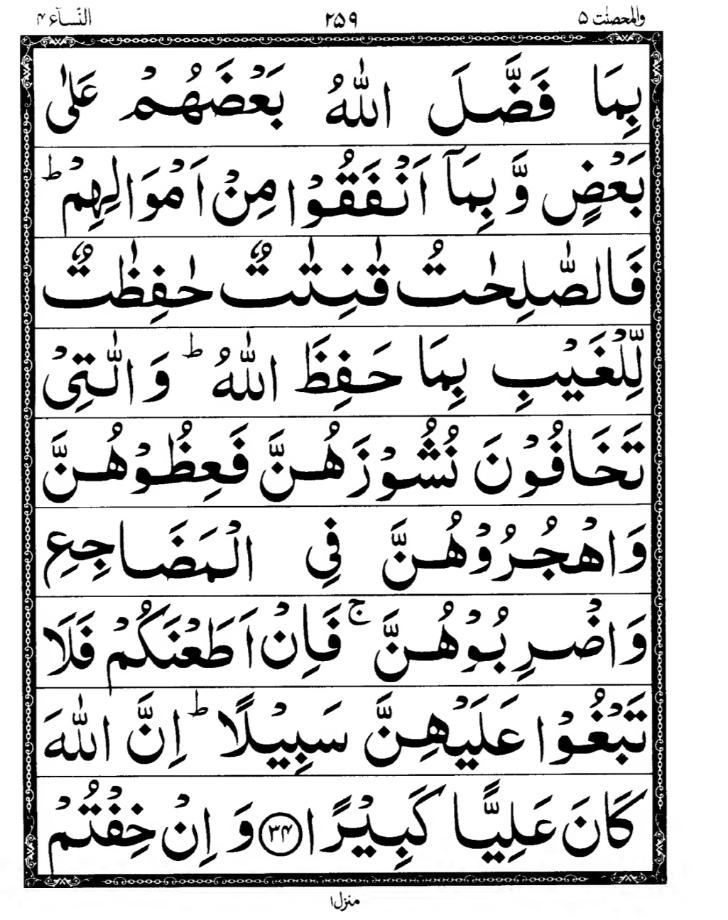 والمحصنت ۵ ۲۵۹ النسآء ۴
بِمَا فَضَّلَ اللّٰهُ بَعْضَهُمْ عَلٰى
بَعْضٍ وَّ بِمَآ اَنْفَقُوْا مِنْ اَمْوَالِهِمْ ؕ
فَالصّٰلِحٰتُ قٰنِتٰتٌ حٰفِظٰتٌ
لِّلْغَيْبِ بِمَا حَفِظَ اللّٰهُ ؕ وَ الّٰتِيْ
تَخَافُوْنَ نُشُوْزَهُنَّ فَعِظُوْهُنَّ
وَاهْجُرُوْهُنَّ فِي الْمَضَاجِعِ
وَاضْرِبُوْهُنَّ ۚ فَاِنْ اَطَعْنَكُمْ فَلَا
تَبْغُوْا عَلَيْهِنَّ سَبِيْلًا ؕ اِنَّ اللّٰهَ
كَانَ عَلِيًّا كَبِيْرًا ﴿۳۴﴾ وَ اِنْ خِفْتُمْ
منزل ۱